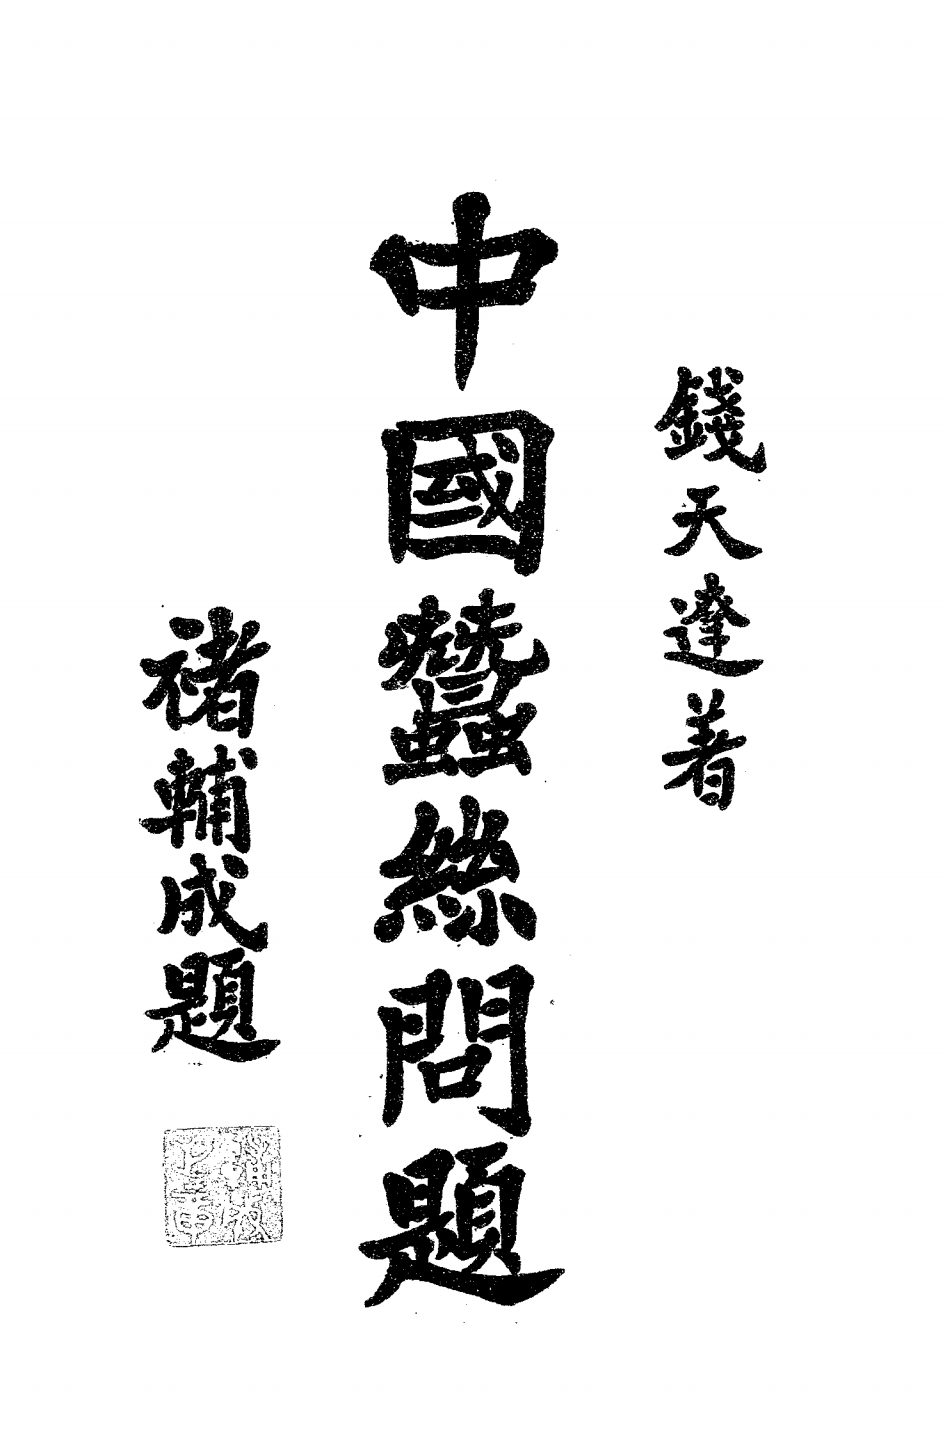 錢天達着
中國蠶絲問題
褚輔成題